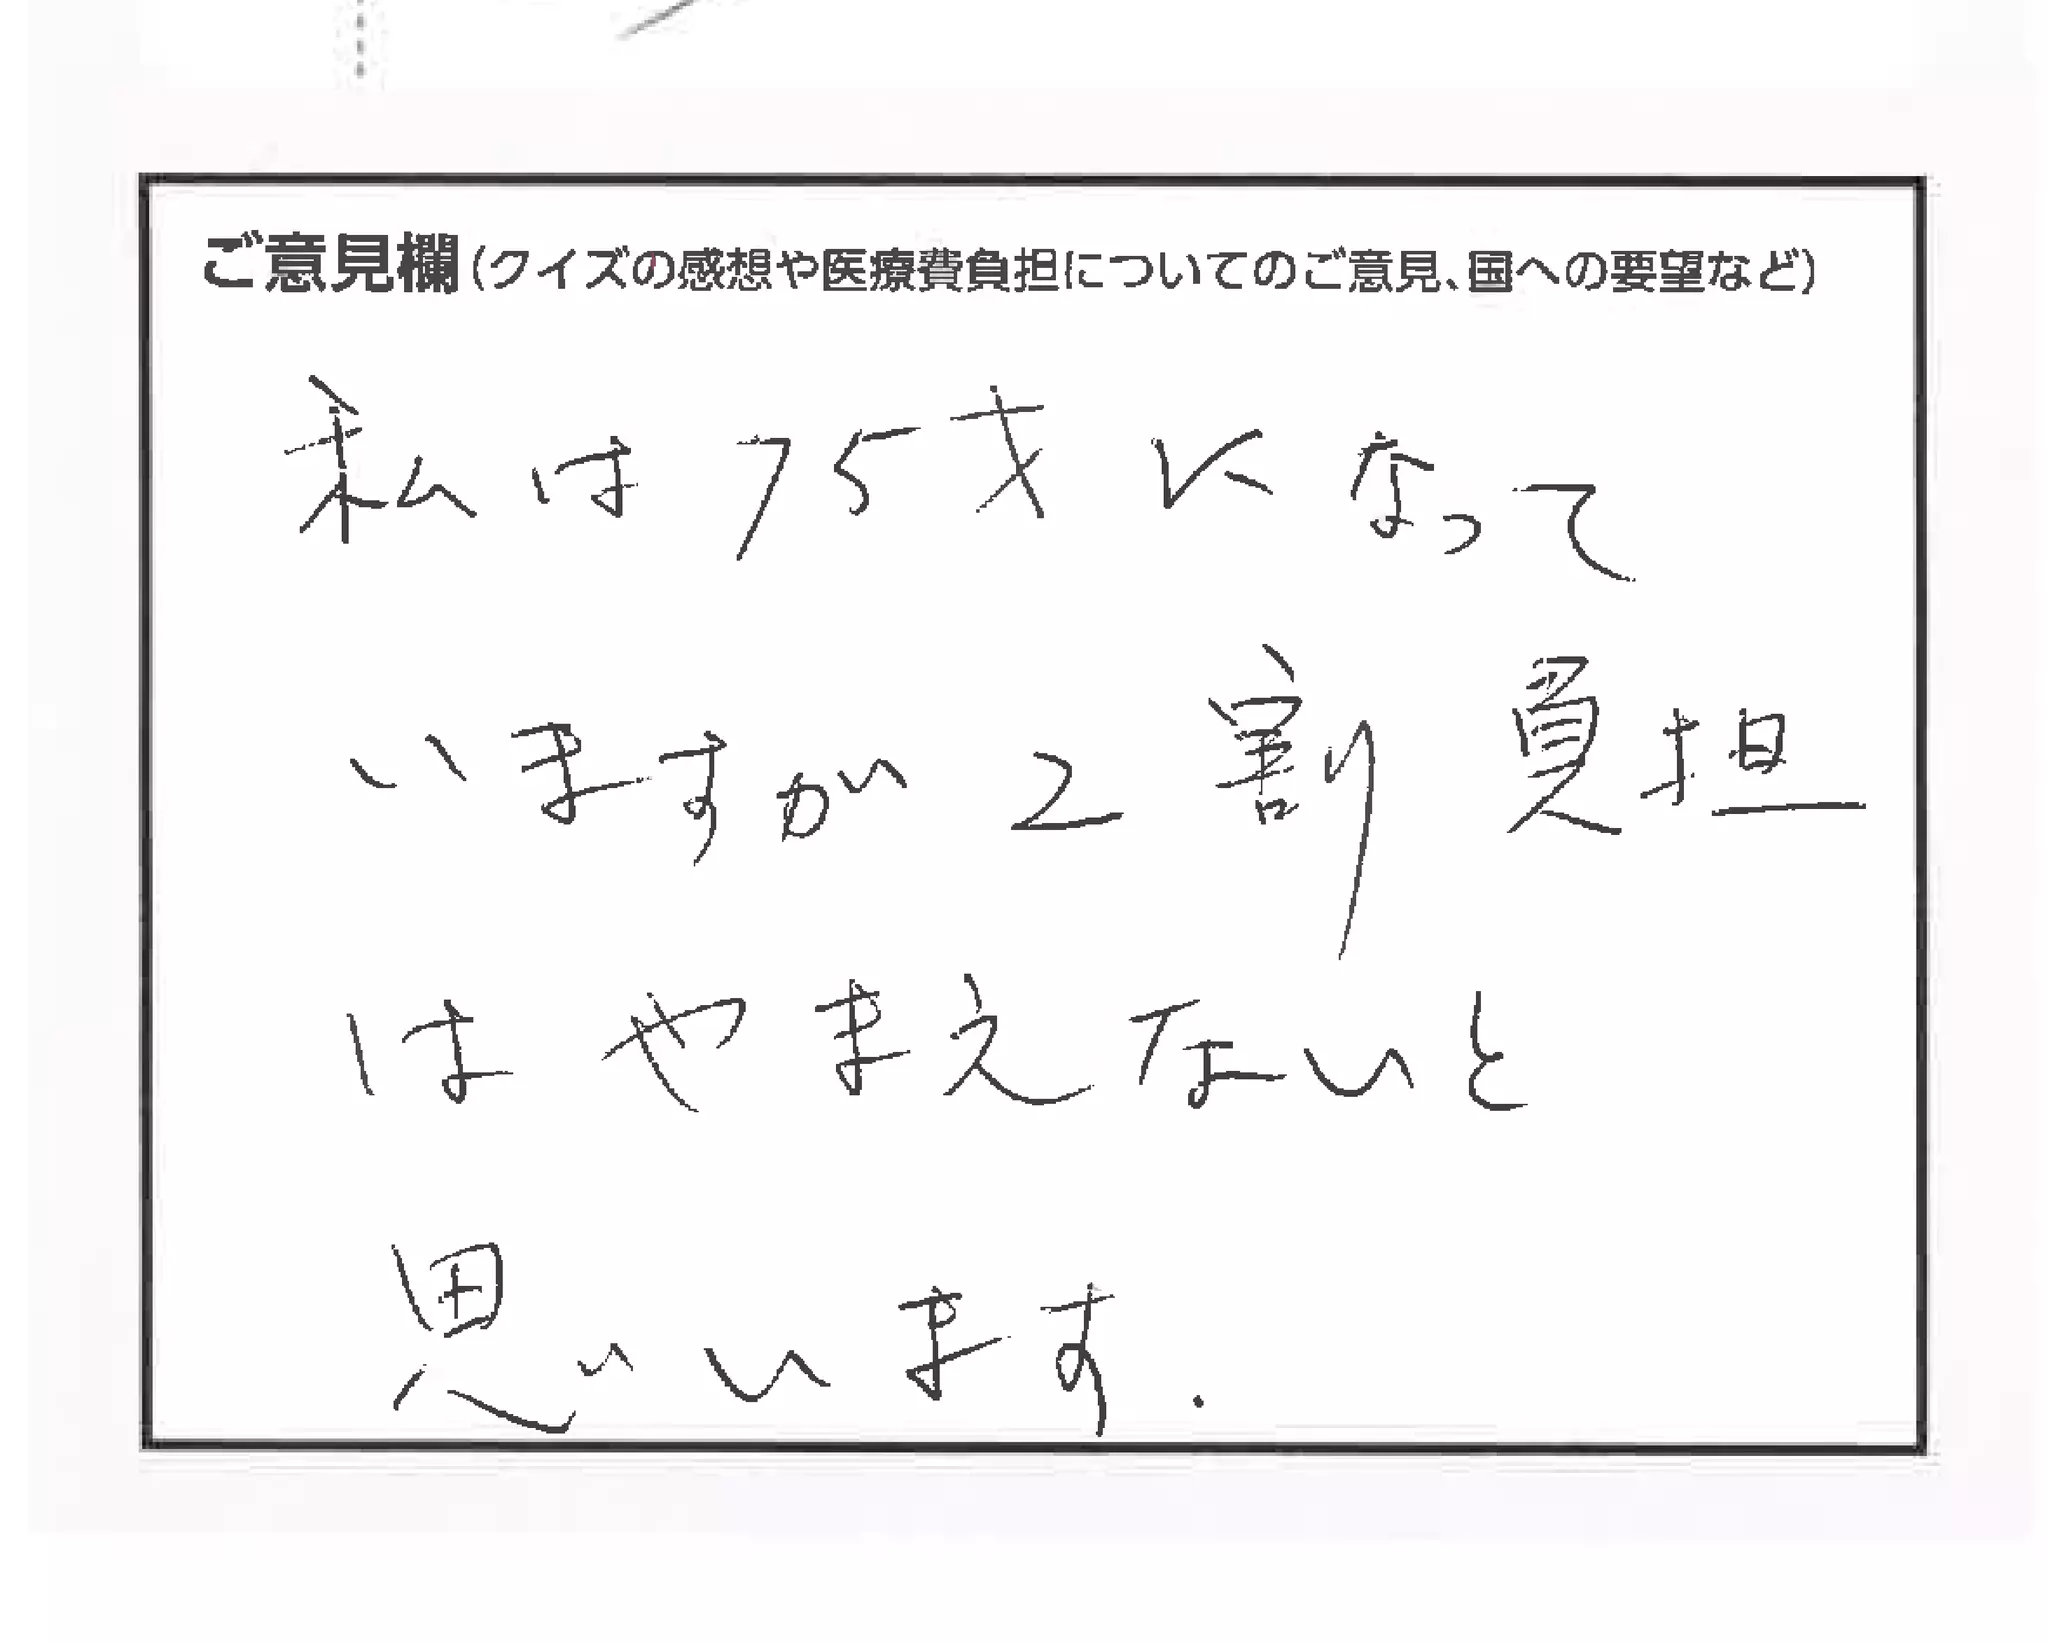 ご意見欄(クイズの感想や医療費負担についてのご意見、国への要望など)
私は75才になって
いますが2割負担
はやまえないと
思いいます.